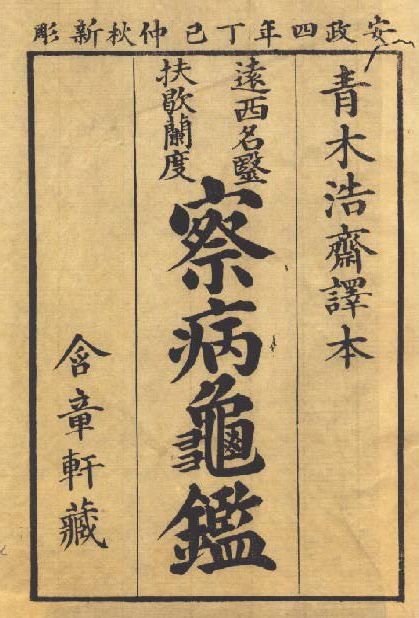 安政四年丁巳仲秋新彫
青木浩齋譯本
遠西名醫
扶歇蘭度
察病龜鑑
含章軒藏